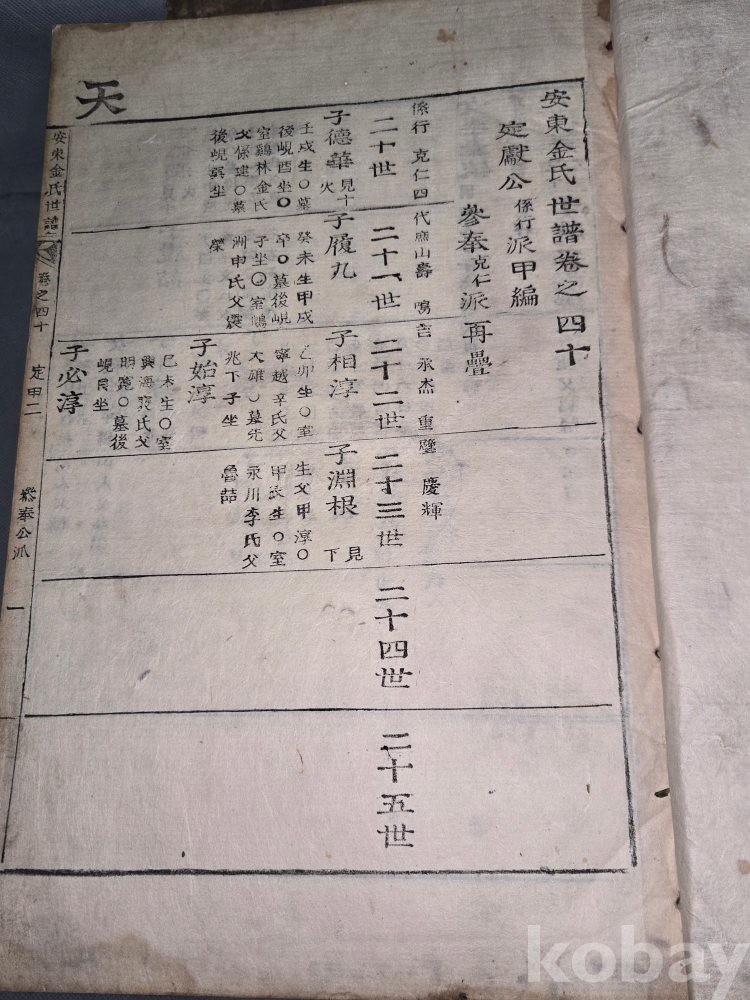 安東金氏世譜卷之四十
定獻公係行派甲編
參奉克仁派 再疊
係行 克仁四代 壽 鳴吉 承杰 重鑒 慶輝
二十世
二十一世
二十二世
二十三世
二十四世
二十五世
子德華 見十火
壬戌生○墓
後峴酉坐○
室鷄林金氏
父保建○墓
後峴巽坐
子履九
癸未生甲戌
卒○墓後峴
子坐○室
洲申氏父震
榮
子相淳
乙卯生○室
寧越辛氏父
大雄○墓先
兆下子坐
子始淳
己未生○室
興海裵氏父
明 ○墓後
峴艮坐
子必淳
子淵根 見下
生父甲淳○
甲辰生○室
永川李氏父
魯喆
天
安東金氏世譜
卷之四十
定甲二
參奉公派
一
kobay